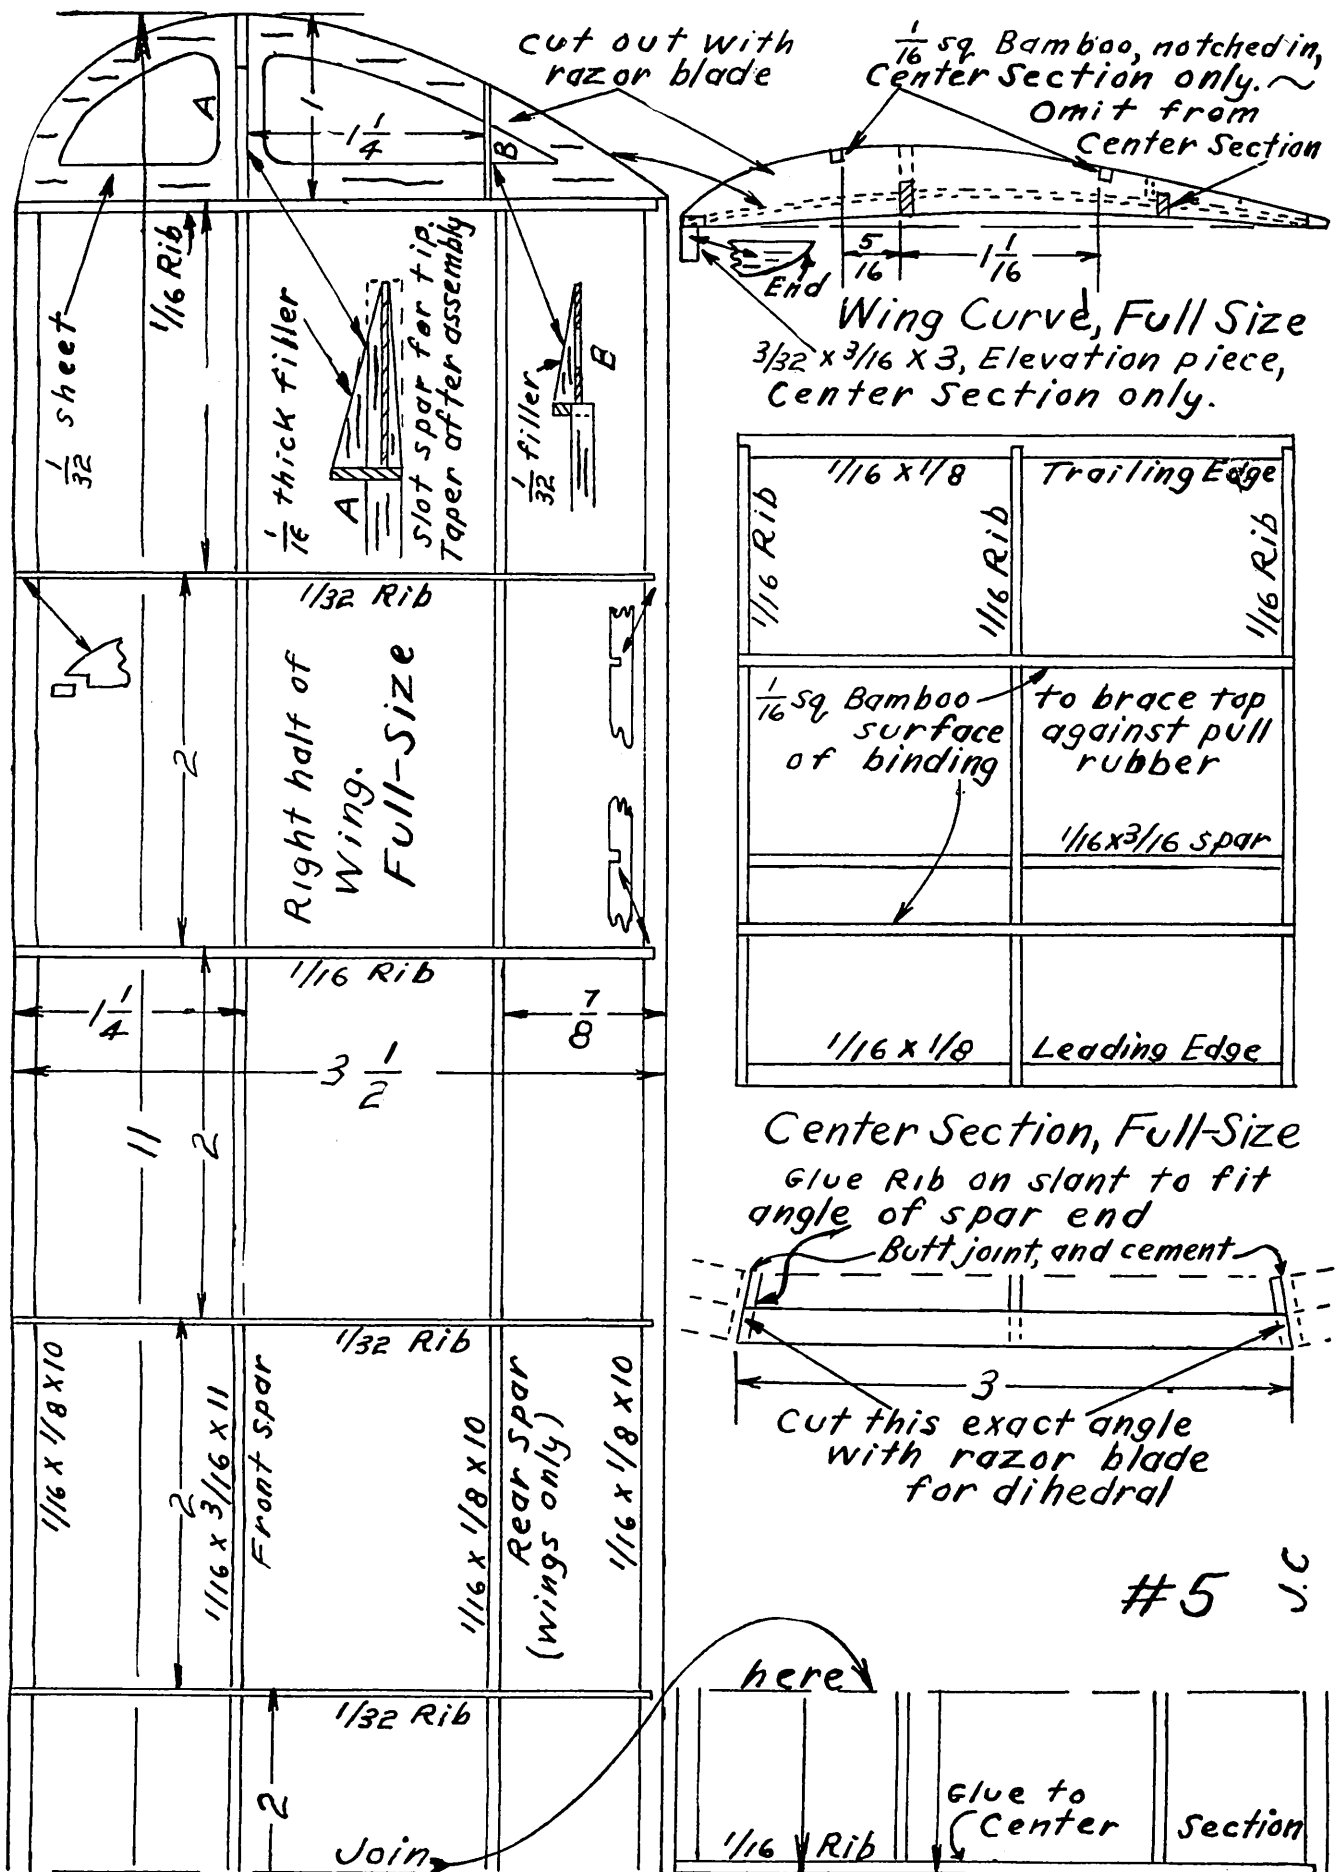 cut out with
razor blade
1/16 sq. Bamboo, notched in,
Center Section only. ~
Omit from
Center Section
A
1
1 1/4
B
5/16
1 1/16
End
Wing Curve, Full Size
3/32 x 3/16 x 3, Elevation piece,
Center Section only.
1/32 sheet
1/16 Rib
1/16 thick filler
A
Slot spar for tip.
Taper after assembly
1/32 filler
B
1/32 Rib
2
Right half of
Wing.
Full-Size
1/16 Rib
1 1/4
7/8
3 1/2
11
2
1/32 Rib
1/16 x 1/8 x 10
2
1/16 x 3/16 x 11
Front spar
1/16 x 1/8 x 10
Rear Spar
(wings only)
1/16 x 1/8 x 10
1/32 Rib
2
Join
1/16 x 1/8 Trailing Edge
1/16 Rib
1/16 Rib
1/16 Rib
1/16 sq. Bamboo to brace top
surface against pull
of binding rubber
1/16 x 3/16 spar
1/16 x 1/8 Leading Edge
Center Section, Full-Size
Glue Rib on slant to fit
angle of spar end
Butt joint, and cement
3
Cut this exact angle
with razor blade
for dihedral
#5
J.C
here
Glue to
Center Section
1/16 Rib